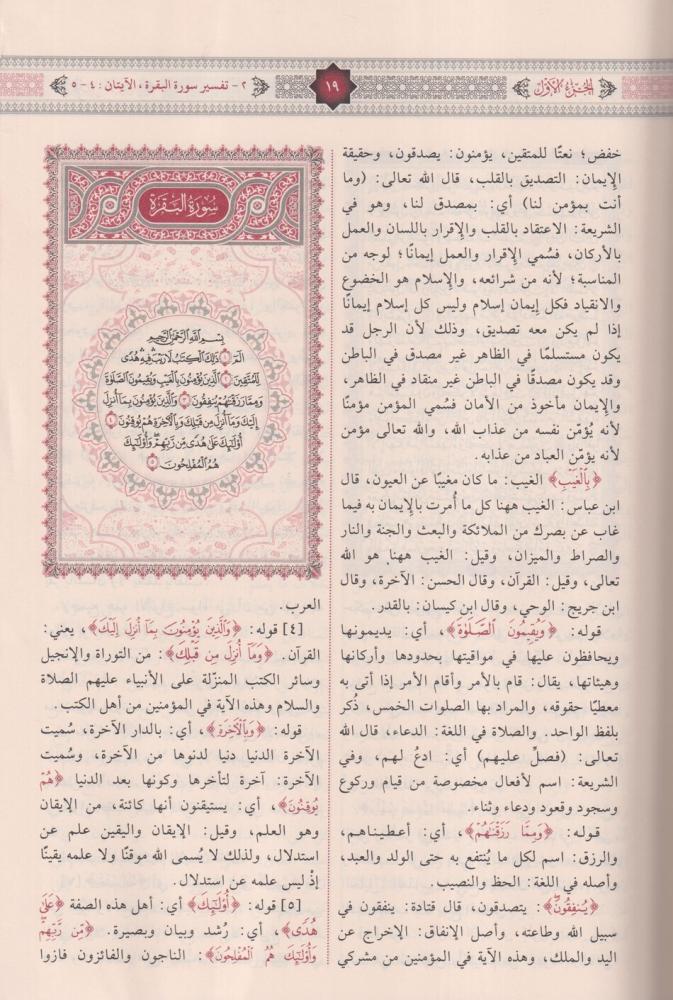 الجزء الأول
١٩
٢- تفسير سورة البقرة، الآيتان: ٤ - ٥
خفض؛ نعتًا للمتقين، يؤمنون: يصدقون، وحقيقة
الإيمان: التصديق بالقلب، قال الله تعالى: (وما
أنت بمؤمن لنا) أي: بمصدق لنا، وهو في
الشريعة: الاعتقاد بالقلب والإقرار باللسان والعمل
بالأركان، فسُمي الإقرار والعمل إيمانًا؛ لوجه من
المناسبة؛ لأنه من شرائعه، والإسلام هو الخضوع
والانقياد فكل إيمان إسلام وليس كل إسلام إيمانًا
إذا لم يكن معه تصديق، وذلك لأن الرجل قد
يكون مستسلمًا في الظاهر غير مصدق في الباطن
وقد يكون مصدقًا في الباطن غير منقاد في الظاهر،
والإيمان مأخوذ من الأمان فسُمي المؤمن مؤمنًا
لأنه يُؤمّن نفسه من عذاب الله، والله تعالى مؤمن
لأنه يؤمّن العباد من عذابه.
﴿بِالْغَيْبِ﴾ الغيب: ما كان مغيبًا عن العيون، قال
ابن عباس: الغيب ههنا كل ما أُمرت بالإيمان به فيما
غاب عن بصرك من الملائكة والبعث والجنة والنار
والصراط والميزان، وقيل: الغيب ههنا هو الله
تعالى، وقيل: القرآن، وقال الحسن: الآخرة، وقال
ابن جريج: الوحي، وقال ابن كيسان: بالقدر.
قوله: ﴿وَيُقِيمُونَ الصَّلَوٰةَ﴾، أي: يديمونها
ويحافظون عليها في مواقيتها بحدودها وأركانها
وهيئاتها، يقال: قام بالأمر وأقام الأمر إذا أتى به
معطيًا حقوقه، والمراد بها الصلوات الخمس، ذُكر
بلفظ الواحد. والصلاة في اللغة: الدعاء، قال الله
تعالى: (فصلِّ عليهم) أي: ادعُ لهم، وفي
الشريعة: اسم لأفعال مخصوصة من قيام وركوع
وسجود وقعود ودعاء وثناء.
قوله: ﴿وَمِمَّا رَزَقْنَٰهُمْ﴾، أي: أعطيناهم،
والرزق: اسم لكل ما يُنتفع به حتى الولد والعبد،
وأصله في اللغة: الحظ والنصيب.
﴿يُنفِقُونَ﴾: يتصدقون، قال قتادة: ينفقون في
سبيل الله وطاعته، وأصل الإنفاق: الإخراج عن
اليد والملك، وهذه الآية في المؤمنين من مشركي
سُورَةُ الْبَقَرَةِ
بِسْمِ اللَّهِ الرَّحْمَٰنِ الرَّحِيمِ
الٓمٓ ١ ذَٰلِكَ الْكِتَٰبُ لَا رَيْبَ فِيهِ هُدًى
لِّلْمُتَّقِينَ ٢ الَّذِينَ يُؤْمِنُونَ بِالْغَيْبِ وَيُقِيمُونَ الصَّلَوٰةَ
وَمِمَّا رَزَقْنَٰهُمْ يُنفِقُونَ ٣ وَالَّذِينَ يُؤْمِنُونَ بِمَا أُنزِلَ
إِلَيْكَ وَمَا أُنزِلَ مِن قَبْلِكَ وَبِالْآخِرَةِ هُمْ يُوقِنُونَ ٤
أُولَٰئِكَ عَلَىٰ هُدًى مِّن رَّبِّهِمْ وَأُولَٰئِكَ
هُمُ الْمُفْلِحُونَ ٥
العرب.
[٤] قوله: ﴿وَالَّذِينَ يُؤْمِنُونَ بِمَا أُنزِلَ إِلَيْكَ﴾، يعني:
القرآن. ﴿وَمَا أُنزِلَ مِن قَبْلِكَ﴾: من التوراة والإنجيل
وسائر الكتب المنزّلة على الأنبياء عليهم الصلاة
والسلام وهذه الآية في المؤمنين من أهل الكتب.
قوله: ﴿وَبِالْآخِرَةِ﴾، أي: بالدار الآخرة، سُميت
الآخرة الدنيا دنيا لدنوها من الآخرة، وسُميت
الآخرة: آخرة لتأخرها وكونها بعد الدنيا ﴿هُمْ
يُوقِنُونَ﴾، أي: يستيقنون أنها كائنة، من الإيقان
وهو العلم، وقيل: الإيقان واليقين علم عن
استدلال، ولذلك لا يُسمى الله موقنًا ولا علمه يقينًا
إذْ ليس علمه عن استدلال.
[٥] قوله: ﴿أُولَٰئِكَ﴾ أي: أهل هذه الصفة ﴿عَلَىٰ
هُدًى﴾، أي: رُشد وبيان وبصيرة. ﴿مِّن رَّبِّهِمْ
وَأُولَٰئِكَ هُمُ الْمُفْلِحُونَ﴾: الناجون والفائزون فازوا